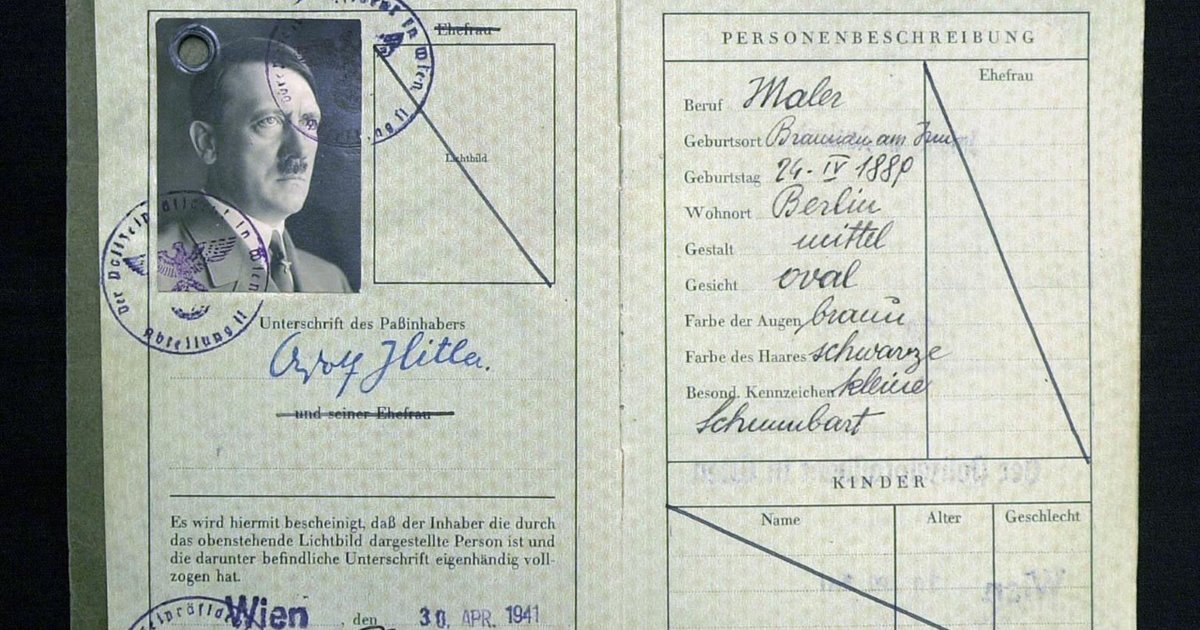 Ehefrau
Wien
Lichtbild
Der Polizeipräsident in Wien
Abteilung II
Unterschrift des Paßinhabers
Adolf Hitler.
und seiner Ehefrau
Es wird hiermit bescheinigt, daß der Inhaber die durch
das obenstehende Lichtbild dargestellte Person ist und
die darunter befindliche Unterschrift eigenhändig voll-
zogen hat.
Wien, den 30. APR. 1941
PERSONENBESCHREIBUNG
Ehefrau
Beruf Maler
Geburtsort Braunau am Inn
Geburtstag 24-IV 1889
Wohnort Berlin
Gestalt mittel
Gesicht oval
Farbe der Augen braun
Farbe des Haares schwarze
Besond. Kennzeichen kleine
KINDER
Name Alter Geschlecht